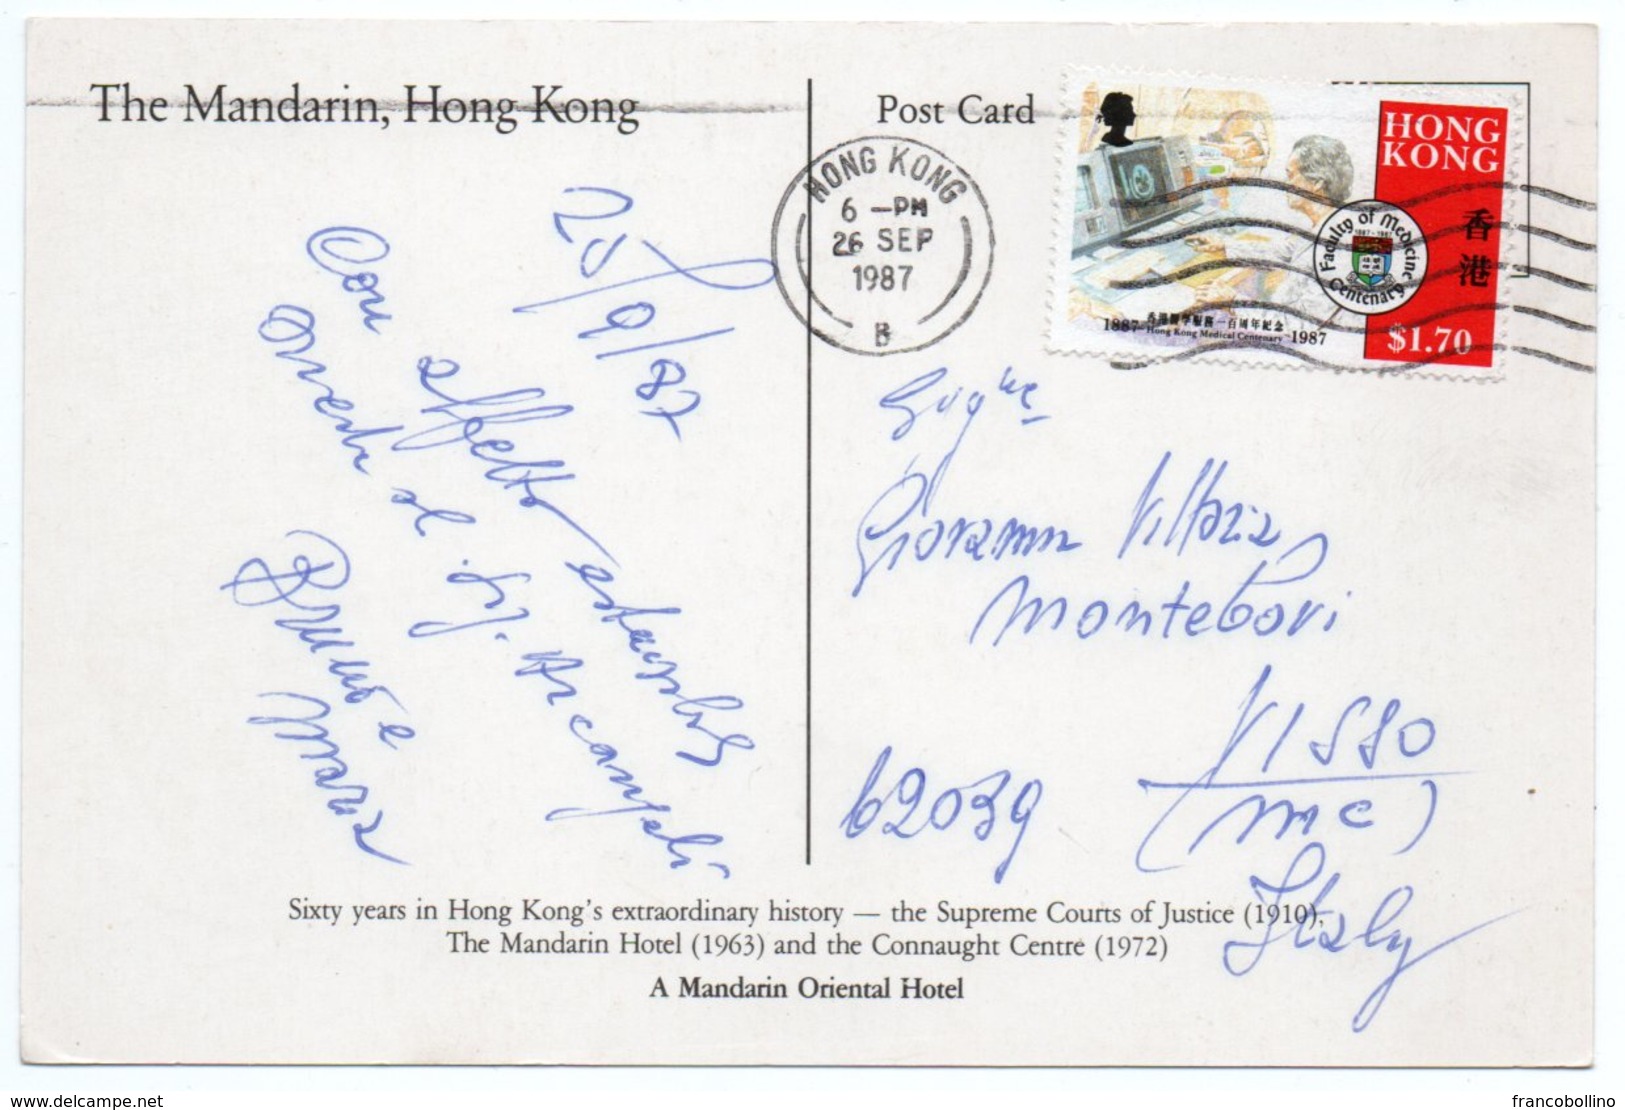 The Mandarin, Hong Kong
Post Card
HONG KONG
6 -PM
26 SEP
1987
B
HONG
KONG
香港
$1.70
Faculty of Medicine
1887-1987
Centenary
香港醫學服務一百周年紀念
1887 - Hong Kong Medical Centenary - 1987
25/9/87
Con affetto
al Sig. Arcangeli
Bruno e
Maria
Giovanni
Montebovi
62039 VISSO
(MC)
Italy
Sixty years in Hong Kong's extraordinary history — the Supreme Courts of Justice (1910),
The Mandarin Hotel (1963) and the Connaught Centre (1972)
A Mandarin Oriental Hotel
www.delcampe.net
francobollino